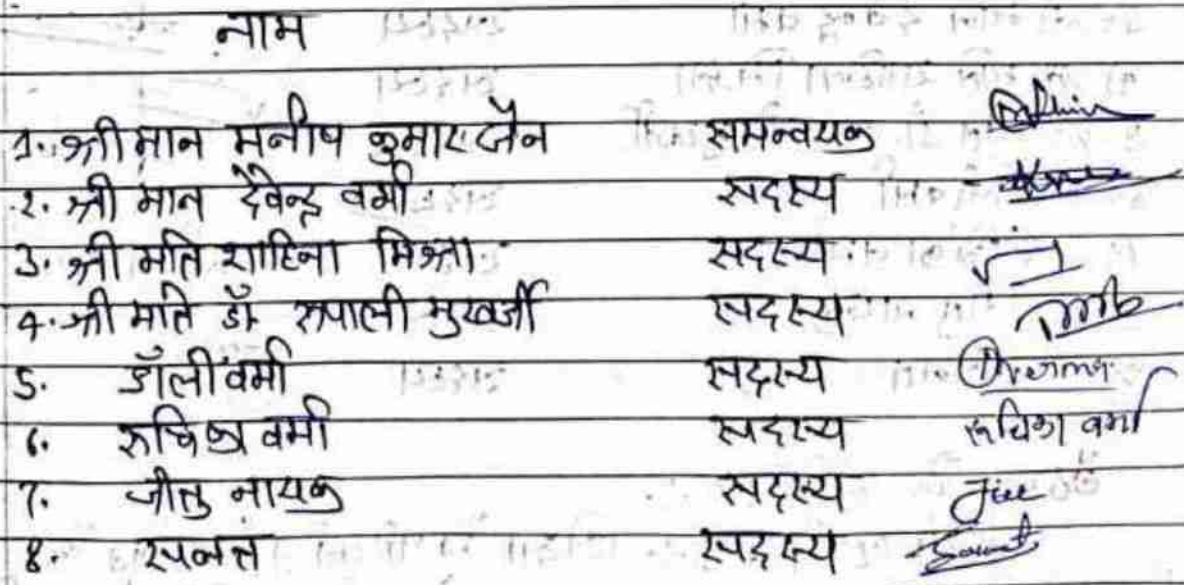 नाम
1. श्री मान मनीष कुमार जैन समन्वयक
2. श्री मान देवेन्द्र वर्मा सदस्य
3. श्री मति शाहिना मिश्रा सदस्य
4. श्री मति डॉ रुपाली मुखर्जी सदस्य
5. डॉली वर्मा सदस्य
6. रुचिका वर्मा सदस्य रुचिका वर्मा
7. जीतु नायक सदस्य
8. सदस्य